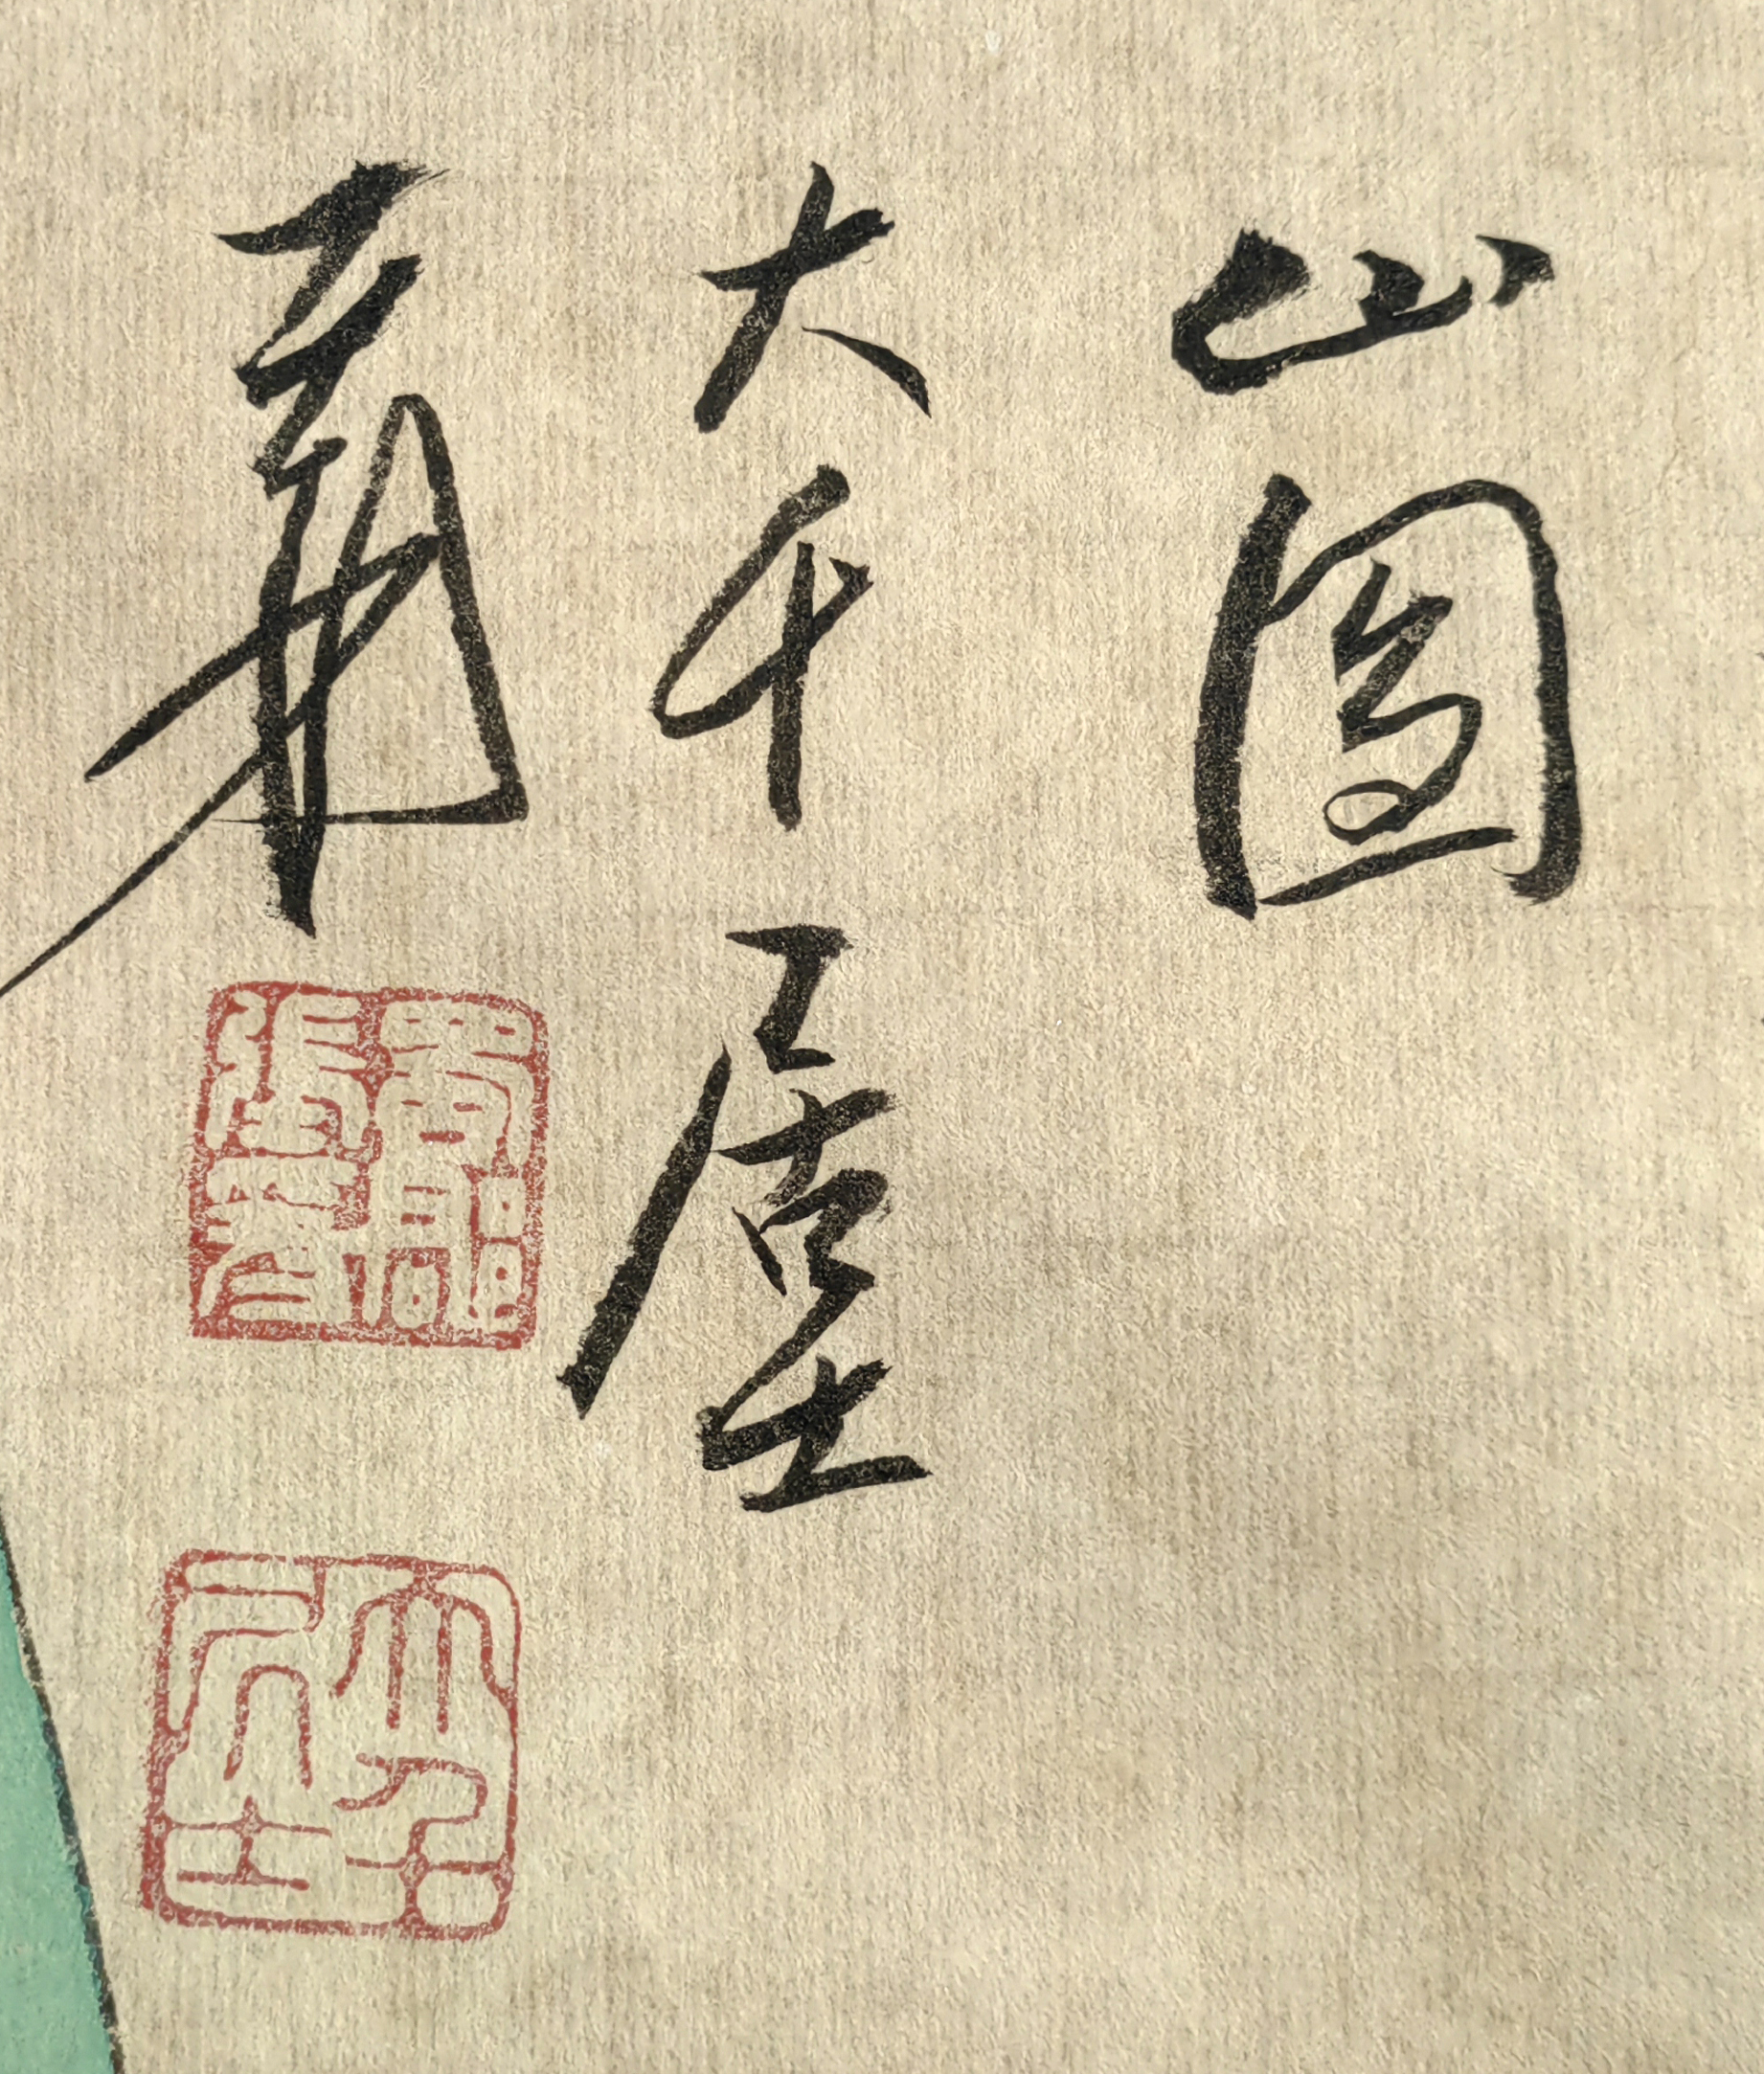 山圖
大千居士
爰
蜀郡張爰
大千居士